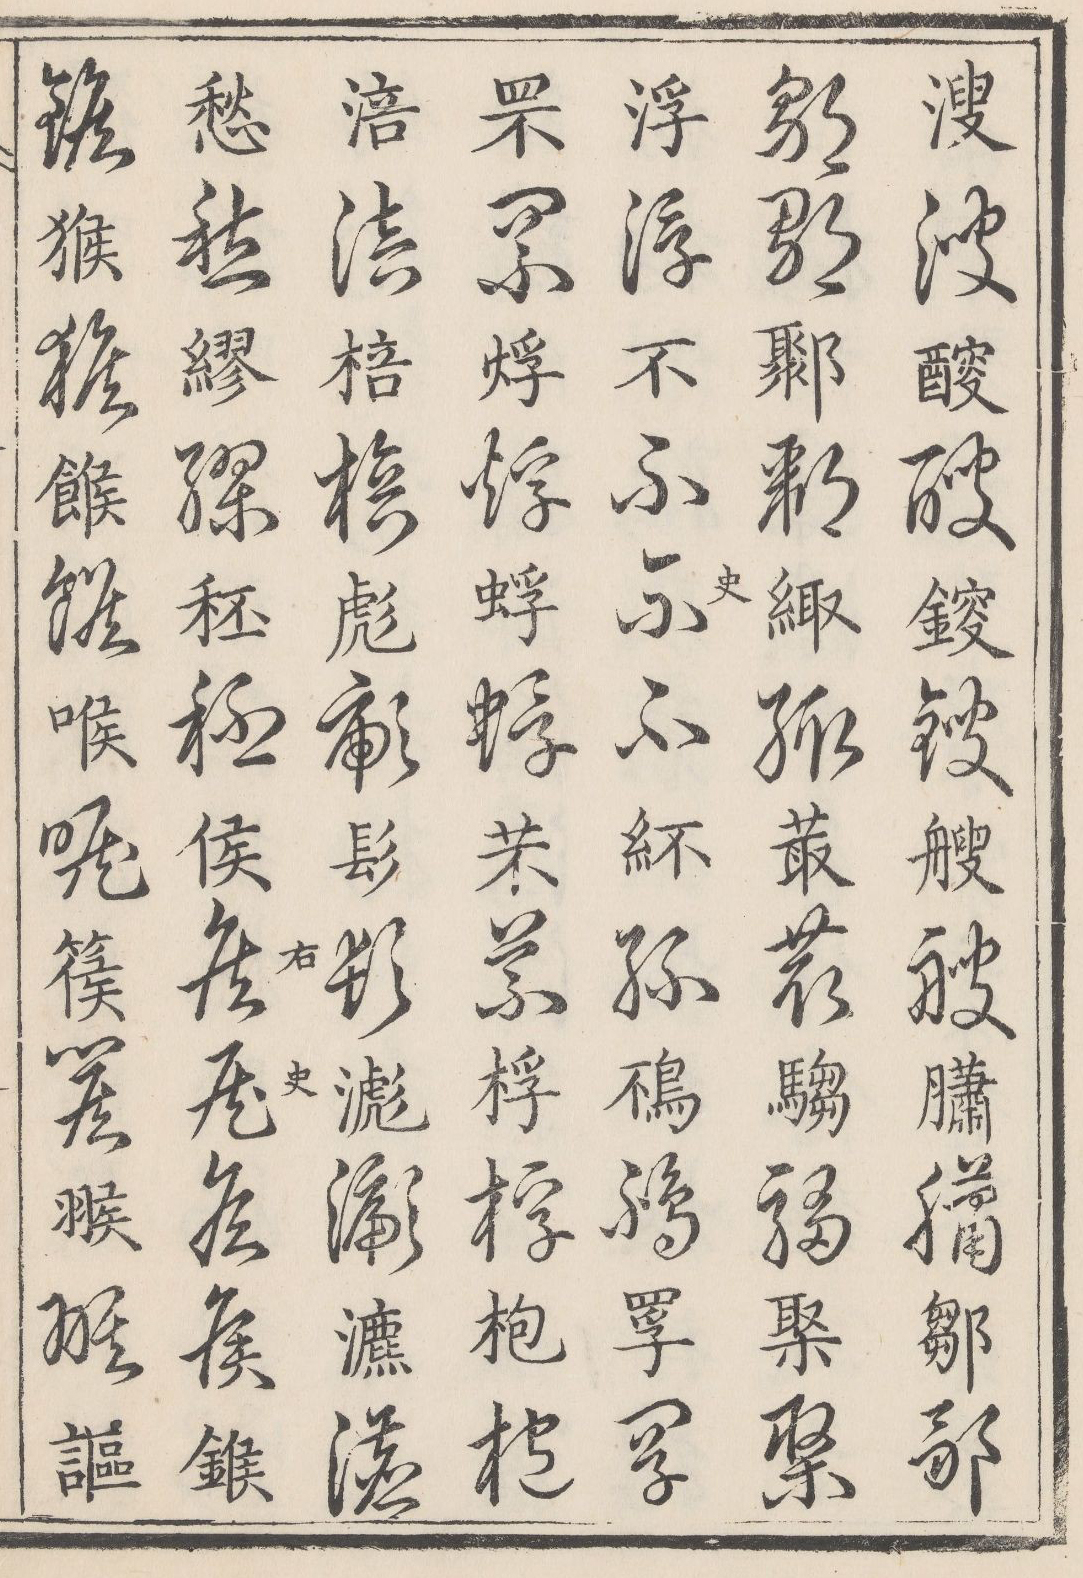 溲溲醙醙鎪鎪艘艘鄒鄒
鄒鄒鄹鄹緅緅菆菆騶騶聚聚
浮浮不不不史不紑紑鴀鴀罦罦
罘罘烰烰蜉蜉芣芣桴桴枹枹
涪涪棓棓彪彪髟髟滮滮瀌瀌
愁愁繆繆秠秠侯侯右侯史侯侯鍭
鍭猴猴餱餱喉喉篌篌翭翭謳